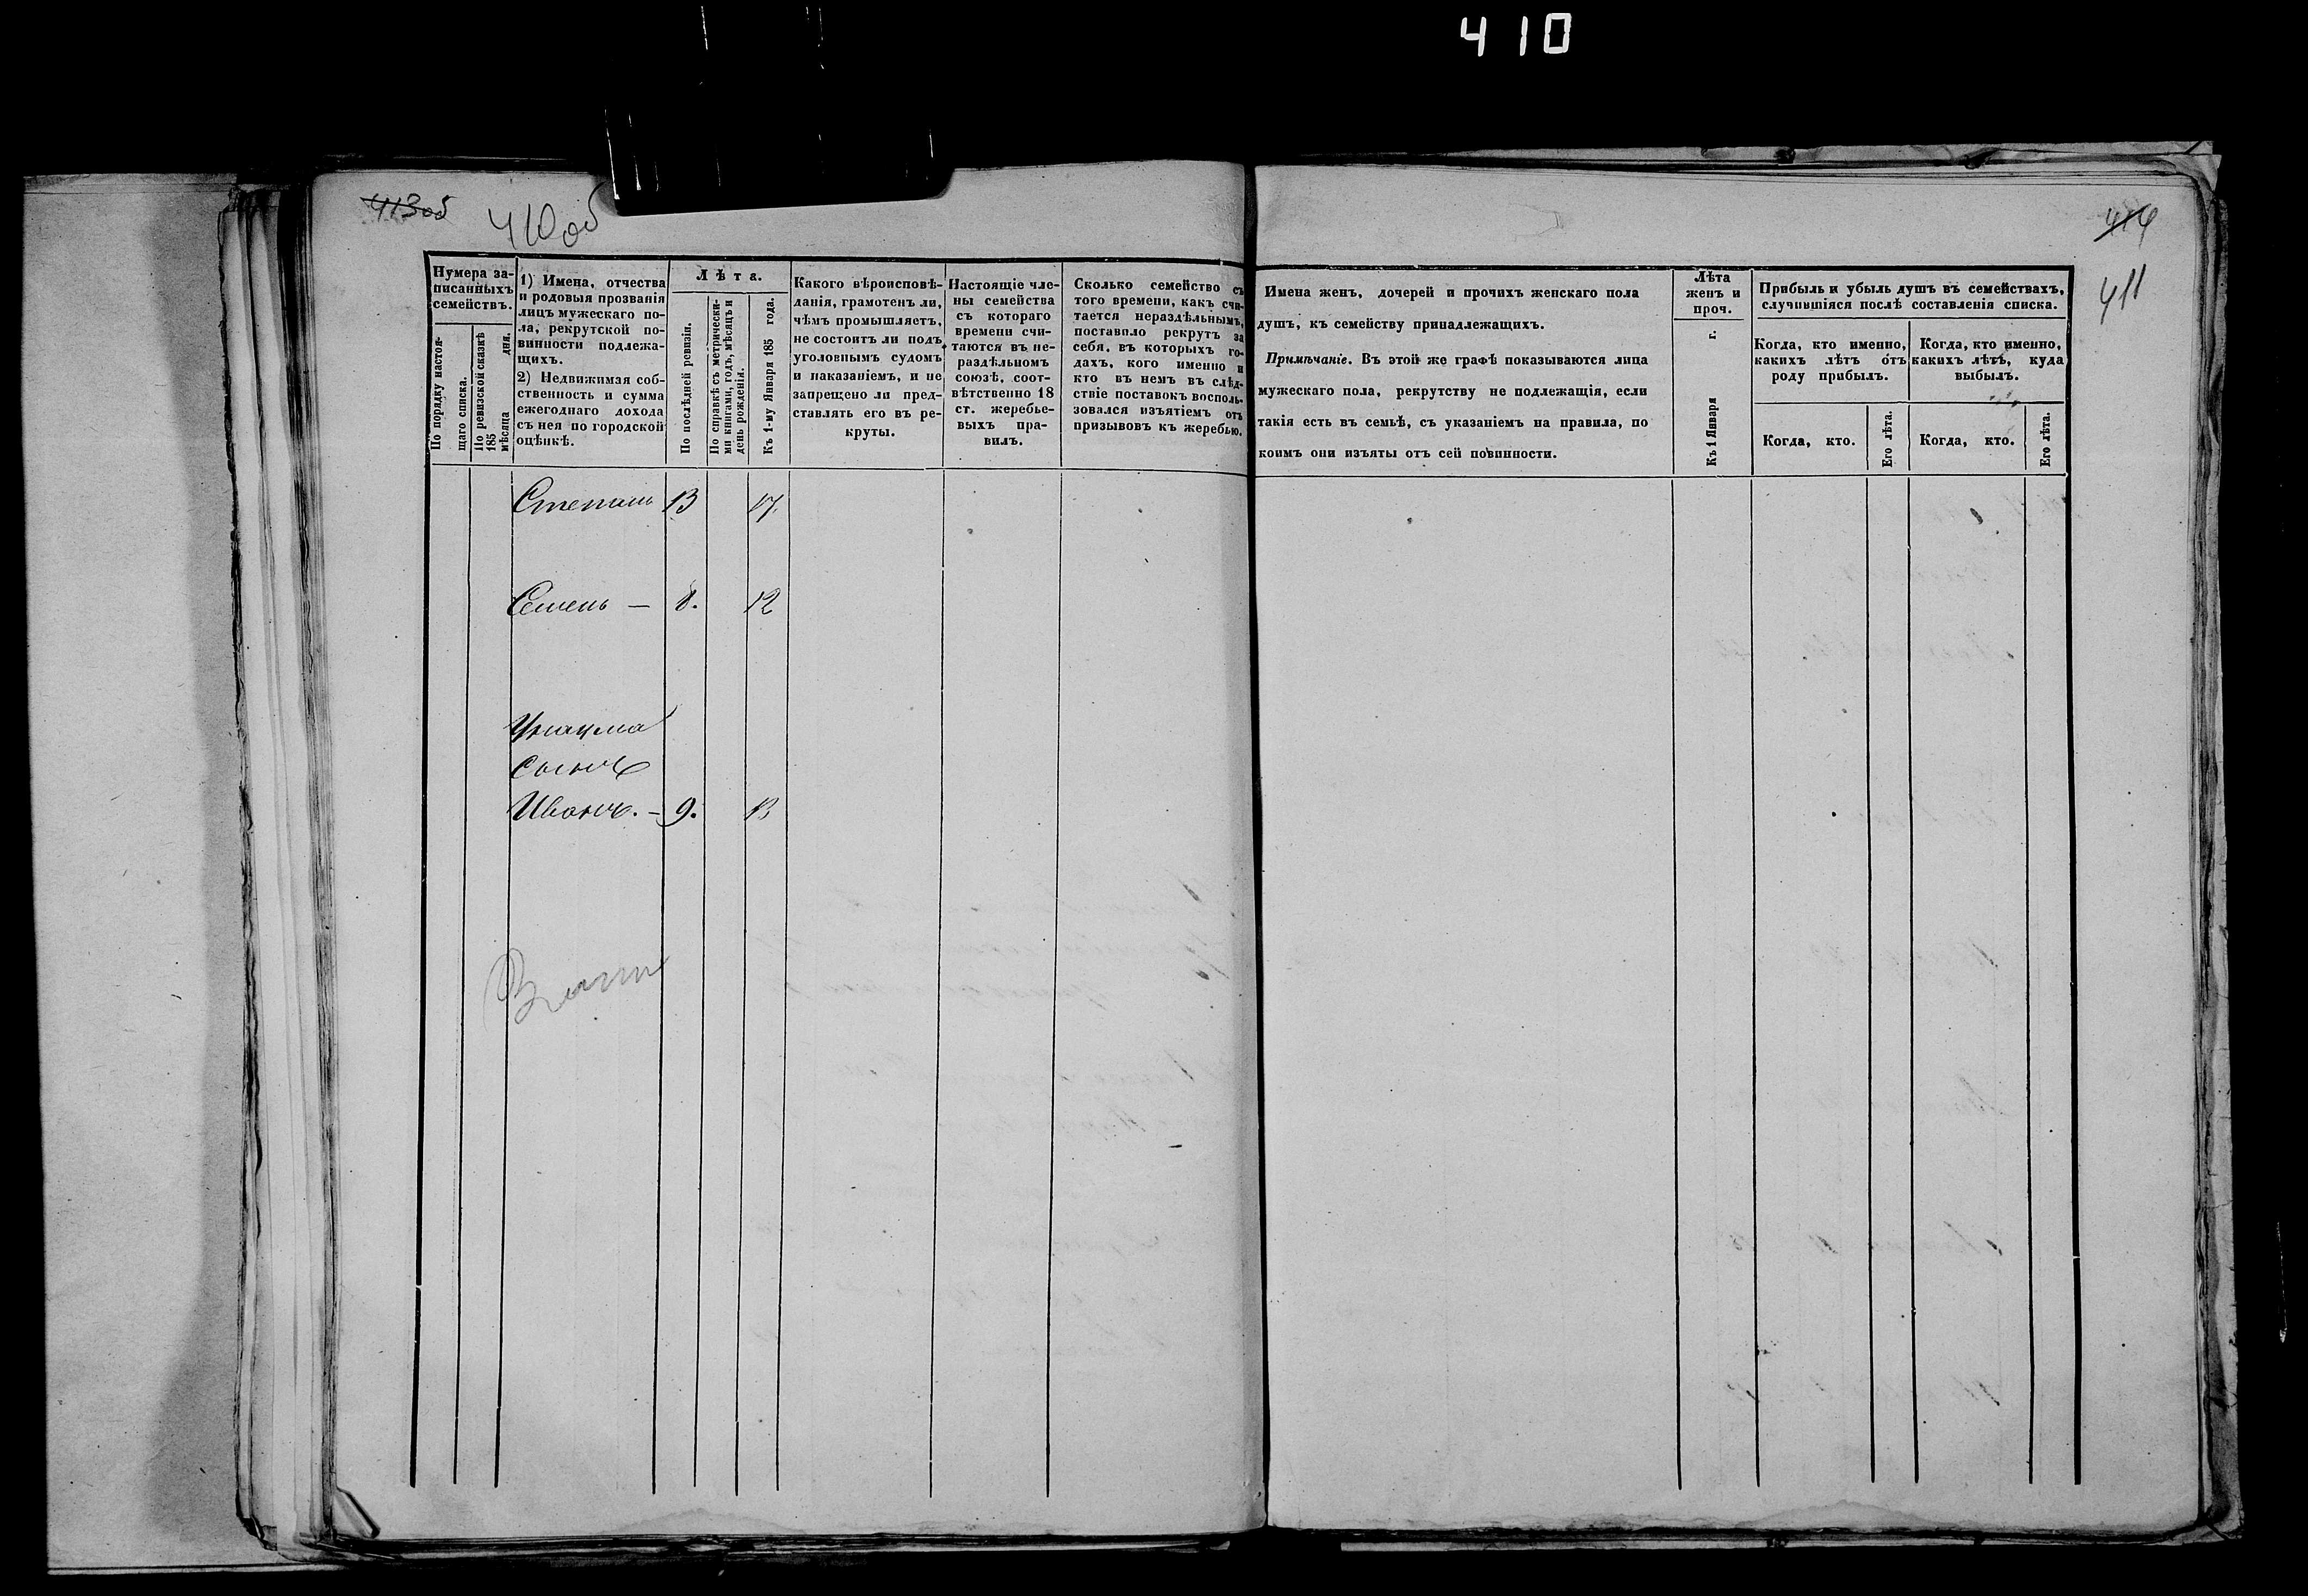 410
413об
410об
414
411
Нумера за-
писанныхъ
семействъ.
По порядку настоя-
щаго списка.
По ревизской сказкѣ
185
мѣсяца дня.
1) Имена, отчества
и родовыя прозванія
лицъ мужескаго по-
ла, рекрутской по-
винности подлежа-
щихъ.
2) Недвижимая соб-
ственность и сумма
ежегоднаго дохода
съ нея по городской
оцѣнкѣ.
Лѣта.
По послѣдней ревизіи.
По справкѣ съ метрически-
ми книгами, годъ, мѣсяцъ и
день рожденія.
Къ 1-му Января 185 года.
Какого вѣроисповѣ-
данія, грамотенъ ли,
чѣмъ промышляетъ,
не состоитъ ли подъ
уголовнымъ судомъ
и наказаніемъ, и не
запрещено ли пред-
ставлять его въ ре-
круты.
Настоящіе чле-
ны семейства
съ котораго
времени счи-
таются въ не-
раздѣльномъ
союзѣ, соот-
вѣтственно 18
ст. жеребье-
выхъ пра-
вилъ.
Сколько семейство съ
того времени, какъ счи-
тается нераздѣльнымъ,
поставило рекрутъ за
себя, въ которыхъ го-
дахъ, кого именно и
кто въ немъ въ слѣд-
ствіе поставокъ восполь-
зовался изъятіемъ отъ
призывовъ къ жеребью.
Имена женъ, дочерей и прочихъ женскаго пола
душъ, къ семейству принадлежащихъ.
Примѣчаніе. Въ этой же графѣ показываются лица
мужескаго пола, рекрутству не подлежащія, если
такія есть въ семьѣ, съ указаніемъ на правила, по
коимъ они изъяты отъ сей повинности.
Лѣта
женъ и
проч.
Къ 1 Января г.
Прибыль и убыль душъ въ семействахъ,
случившіяся послѣ составленія списка.
Когда, кто именно,
какихъ лѣтъ отъ
роду прибылъ.
Когда, кто именно,
какихъ лѣтъ, куда
выбылъ.
Когда, кто.
Его лѣта.
Когда, кто.
Его лѣта.
Степанъ 13 17.
Семенъ — 8. 12
Игнатма
Сынъ
Иванъ. — 9. 13